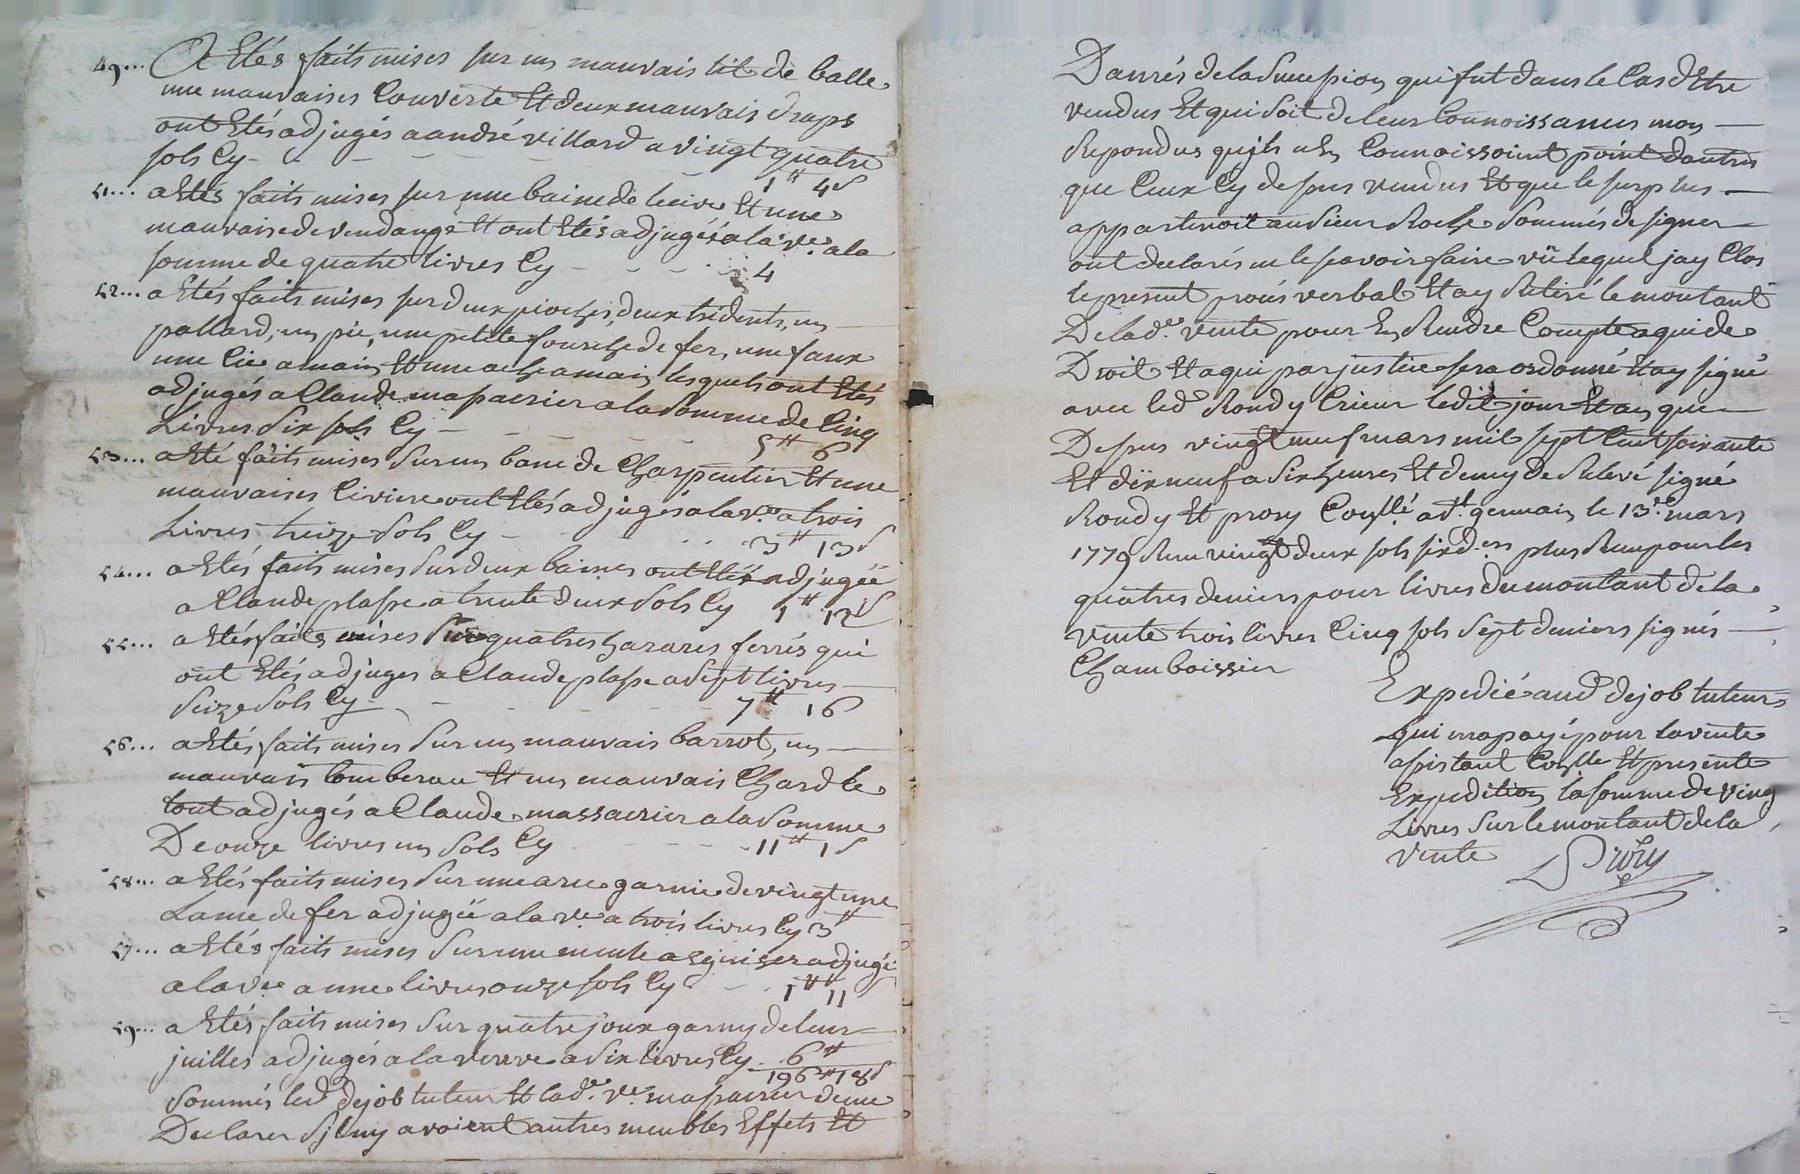 49... A Etés faits mises sur un mauvais lit de balle
une mauvaises Couverte Et deux mauvais draps
ont Etés adjugés a andré villard a vingt quatre
sols Cy - - - - - - 1# 4s
51... a Etés faits mises sur une baine de lecive Et une
mauvaise de vendange Et ont Etés adjugés a la ve. a la
somme de quatre livres Cy - - - - 4
52... a Etés faits mises sur deux pioches, deux tridents, un
pallard, un pic, une petite fourche de fer, une faux
une Cie a main Et une ache a main lesquels ont Etés
adjugés a Claude massacrier a la Somme de Cinq
Livres Six sols Cy - - - - - 5# 6
53... a Eté faits mises Sur un banc de Charpentier Et une
mauvaises Civiere ont Etés adjugés a la ve. a trois
Livres treize Sols Cy - - - 3# 13s
54... a Etés faits mises Sur deux baines ont Etés adjugée
a Claude plasse a trente deux Sols Cy 1# 12s
55... a Etés faits mises Sur quatres harares ferrés qui
ont Etés adjuges a Claude plasse a Sept livres
Seize Sols Cy - - - - - 7# 16
56... a Etés faits mises Sur un mauvais barrot, un
mauvais tombereau Et un mauvais Chard le
tout adjugés a Claude massacrier a la Somme
De onze livres un Sols Cy - - - - 11# 1s
58... a Etés faits mises Sur une arue garnie de vingt une
Lame de fer adjugée a la ve. a trois livres Cy 3#
57... a Etés faits mises Sur une meule a eguiser adjugé
a la ve. a une livres onze sols Cy - - 1# 11s
59... a Etés faits mises Sur quatre joux garny de leur
juilles adjugés a la veuve a Six livres Cy - 6#
196# 18s
Sommés led. dejob tuteur Et lad. ve. massacrier de me
Declarer S'il ny avoient autres meubles Effets Et
Danrés de la Succession qui fut dans le Cas d'Etre
vendus Et qui Soit De leur Connoissances mon
Repondus qu'ils n'En Connoissoint point d'autres
que Ceux Cy dessus vendus Et que le surplus
appartenoit au Sieur Roche Sommés de signer
ont declarés ne le scavoir faire vü lequel jay Clos
le present procés verbal Et ay Retiré le montant
De lad. vente pour En Rendre Compte a qui de
Droit Et a qui par justice sera ordonné Et ay signé
avec led. Rondy Crieur ledit jour Et an que
Dessus vingt neuf mars mil sept Cent soixante
Et dix neuf a Six heures Et demy de Relevé signé
Rondy Et prory Conllé a St. germain le 13e mars
1779 Recu vingt deux sols six d.ers plus Recu pour les
quatres deniers pour livres du montant de la
vente trois livres Cinq sols Sept deniers signés
Chamboissier
Expedié aud. dejob tuteur
qui ma payé pour la vente
assistant Conlle Et presente
Expedition la somme de ving
Livres Sur le montant de la
vente